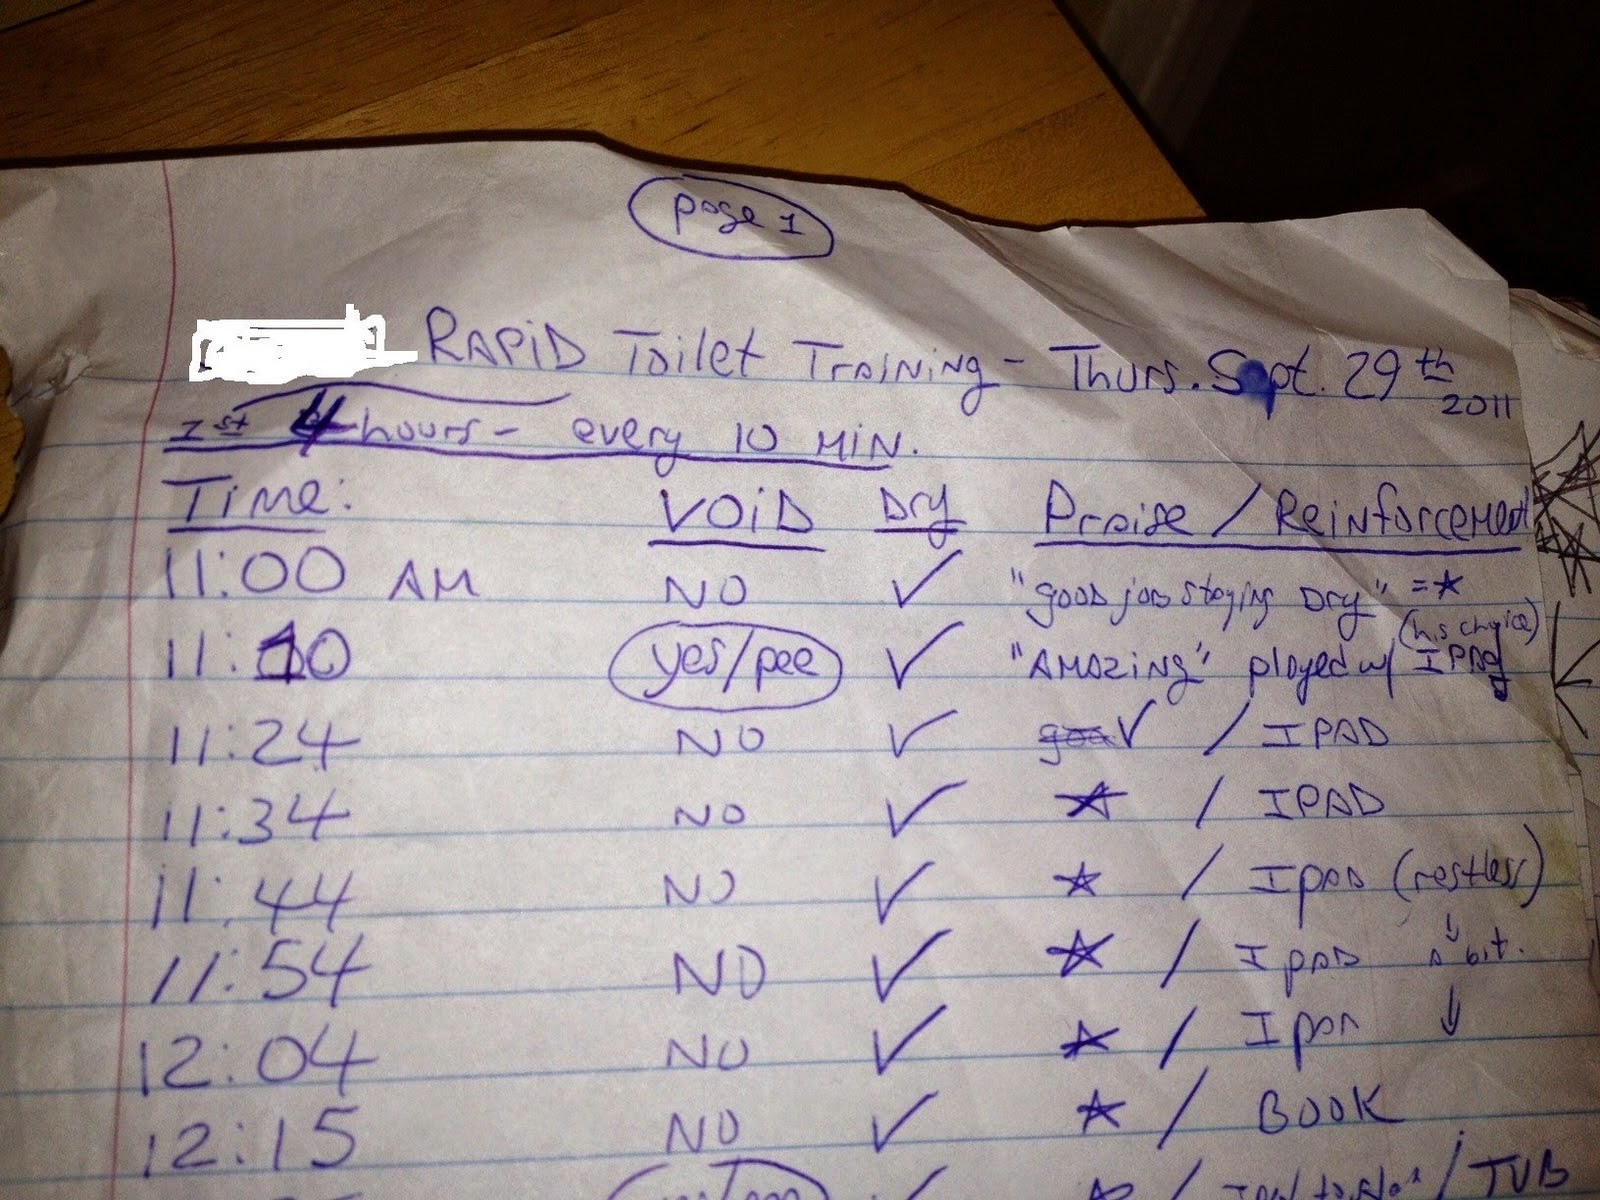 page 1
RAPiD Toilet Training - Thurs. Sept. 29th
2011
1st 4 hours - every 10 MIN.
Time: VOiD Dry Praise / Reinforcement
11:00 AM NO ✓ "good job staying Dry" = ★
(his choice)
11:10 yes/pee ✓ "AMAZING" played w/ IPAD
11:24 NO ✓ ✓ / IPAD
11:34 NO ✓ ★ / IPAD
11:44 NO ✓ ★ / IPAD (restless)
11:54 NO ✓ ★ / IPAD ↓ a bit.
12:04 NO ✓ ★ / IPAD ↓
12:15 NO ✓ ★ / BOOK
✓ ★ / / TUB